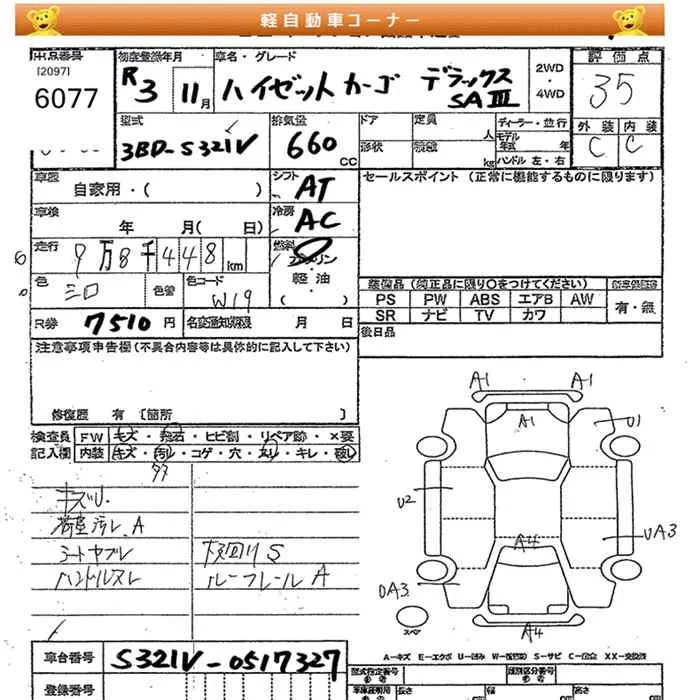 軽自動車コーナー
出品番号
[2097]
6077
初度登録年月
R3 11月
車名・グレード
ハイゼットカーゴ デラックス SAⅢ
2WD
4WD
評価点
35
型式
3BD-S321V
排気量
660 CC
ドア
形状
定員
人
積載
kg
ディーラー・並行
モデル年式 年
ハンドル 左・右
外装 内装
C C
車歴
自家用・( )
シフト
AT
セールスポイント (正常に機能するものに限ります)
車検
年 月( 日)
冷房
AC
走行
9万8千448km
燃料
ガソリン
・
軽油
( )
色
シロ
色替
色コード
W19
装備品 (純正品に限り○をつけてください)
PS PW ABS エアB AW
SR ナビ TV カワ
新車保証書
有・無
R券 7510円
名変通知期限 月 日
後日品
注意事項申告欄(不具合内容等は具体的に記入して下さい)
修復歴 有 [箇所 ]
検査員
記入欄
FW キズ・飛石・ヒビ割・リペア跡・×要
内装 キズ・汚レ・コゲ・穴・スリ・キレ・破レ
キズU.
荷室汚レ A
シートヤブレ 下回りS
ハンドルスレ ルーフレールA
A1 A1
A1
U1
U2
UA3
A4
UA3
スペア
A4
A-キズ E-エクボ U-凹み W-(補修) S-サビ C-腐食 XX-交換済
車台番号
S321V-0517327
登録番号
型式指定番号
類別区分番号
長さ 幅 高さ